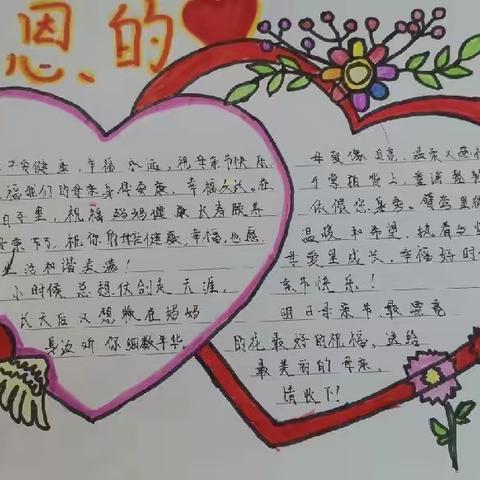 恩的
平安健康,幸福永远,祝母亲节快乐
福我们的母亲身体安康,幸福久长。在
日子里,祝福妈妈健康长寿
母亲节了,祝你的母亲健康,幸福,
生活和谐美满!
小时候总想仗剑走天涯,
长大后只想躲在妈妈
身边听你细数年华。
母爱像月亮,温柔又
千寒相背上,
偎偎您身旁。
温暖和希望,执着与
母爱里成长,幸福好时
亲节快乐!
明日母亲节最漂亮
的花最好的祝福,送给
最美丽的母亲,
请收下!